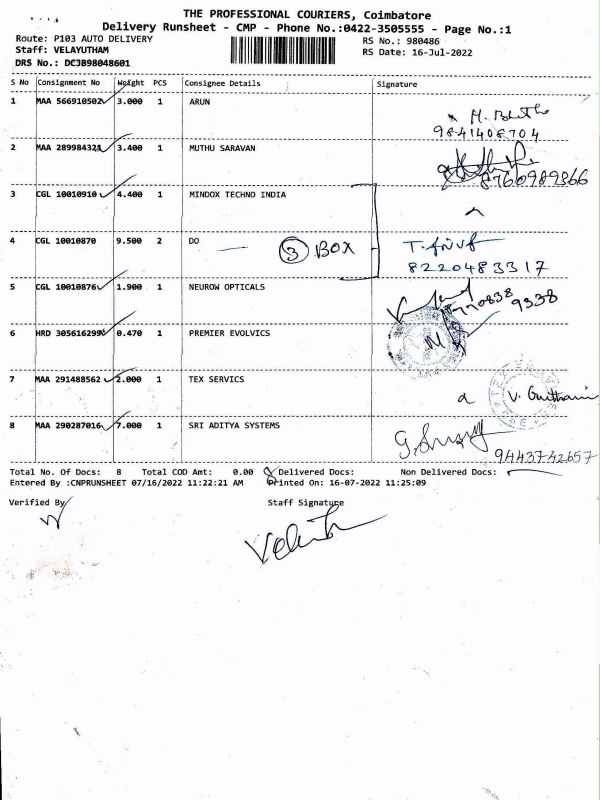 THE PROFESSIONAL COURIERS, Coimbatore
Delivery Runsheet - CMP - Phone No.:0422-3505555 - Page No.:1
Route: P103 AUTO DELIVERY
RS No.: 980486
Staff: VELAYUTHAM
RS Date: 16-Jul-2022
DRS No.: DCJB98048601
S No Consignment No Weight PCS Consignee Details Signature
1 MAA 566910502 3.000 1 ARUN
9841408704
2 MAA 289984321 3.400 1 MUTHU SARAVAN
8760989366
3 CGL 10010910 4.400 1 MINDOX TECHNO INDIA
4 CGL 10010870 9.500 2 DO 3 BOX
8220483317
5 CGL 10010876 1.900 1 NEUROW OPTICALS
9338
6 HRD 305616299 0.470 1 PREMIER EVOLVICS
7 MAA 291488562 2.000 1 TEX SERVICS
8 MAA 290287016 7.000 1 SRI ADITYA SYSTEMS
9443742657
Total No. Of Docs: 8 Total COD Amt: 0.00 Delivered Docs: Non Delivered Docs:
Entered By :CNPRUNSHEET 07/16/2022 11:22:21 AM Printed On: 16-07-2022 11:25:09
Verified By Staff Signature